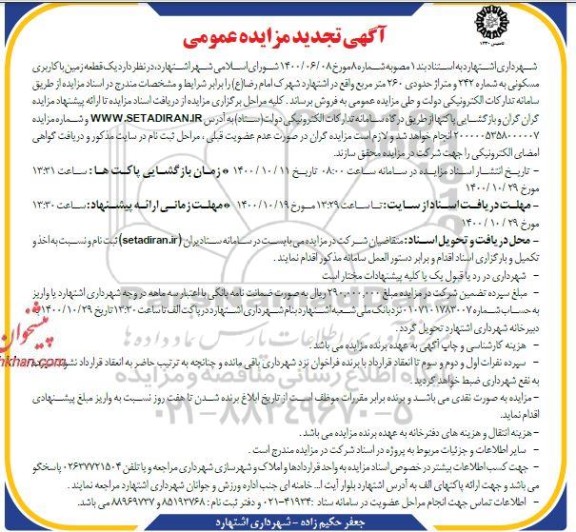 آگهی تجدید مزایده عمومی
شهرداری اشتهارد به استناد بند ۱ مصوبه شماره ۸ مورخ ۱۴۰۰/۰۶/۰۸ شورای اسلامی شهر اشتهارد، در نظر دارد یک قطعه زمین با کاربری
مسکونی به شماره ۲۴۲ و متراژ حدودی ۲۶۰ متر مربع واقع در اشتهارد شهرک امام رضا(ع) را برابر شرایط و مشخصات مندرج در اسناد مزایده از طریق
سامانه تدارکات الکترونیکی دولت و طی مزایده عمومی به فروش برساند. کلیه مراحل برگزاری مزایده از دریافت اسناد مزایده تا ارائه پیشنهاد مزایده
گران و بازگشایی پاکتها از طریق درگاه سامانه تدارکات الکترونیکی دولت (ستاد) به آدرس WWW.SETADIRAN.IR و شماره مزایده
۲۰۰۰۰۰۵۲۵۸۰۰۰۰۰۷ انجام خواهد شد و لازم است مزایده گران در صورت عدم عضویت قبلی، مراحل ثبت نام در سایت مذکور و دریافت گواهی
امضای الکترونیکی را جهت شرکت در مزایده محقق سازند.
- تاریخ انتشار اسناد مزایده در سامانه ساعت ۰۸:۰۰ تاریخ ۱۴۰۰/۱۰/۱۱ *زمان بازگشایی پاکت ها: ساعت ۱۳:۳۱
مورخ ۱۴۰۰/۱۰/۲۹
- مهلت دریافت اسناد از سایت: تا ساعت ۱۳:۲۹ مورخ ۱۴۰۰/۱۰/۱۹ *مهلت زمانی ارائه پیشنهاد: ساعت ۱۳:۳۰
مورخ ۱۴۰۰/۱۰/۲۹
- محل دریافت و تحویل اسناد: متقاضیان شرکت در مزایده می بایست در سامانه ستاد ایران (setadiran.ir) ثبت نام و نسبت به اخذ و
تکمیل و بارگزاری اسناد اقدام و برابر دستور العمل سامانه مذکور اقدام نمایند.
- شهرداری در رد یا قبول یک یا کلیه پیشنهادات مختار است
- مبلغ سپرده تضمین شرکت در مزایده مبلغ ۳۹۰،۰۰۰،۰۰۰ ریال به صورت ضمانت نامه بانکی با اعتبار سه ماهه در وجه شهرداری اشتهارد یا واریز
به حساب شماره ۰۱۰۷۱۰۱۷۸۳۰۰۷ نزد بانک ملی شعبه اشتهارد بنام شهرداری اشتهارد در پاکت الف تا ساعت ۱۳:۳۰ تاریخ ۱۴۰۰/۱۰/۲۹ به
دبیرخانه شهرداری اشتهارد تحویل گردد.
- هزینه کارشناسی و چاپ آگهی به عهده برنده مزایده می باشد.
- سپرده نفرات اول و دوم و سوم تا انعقاد قرارداد با برنده فراخوان نزد شهرداری باقی مانده و چنانچه به ترتیب حاضر به انعقاد قرارداد نشوند سپرده
به نفع شهرداری ضبط خواهد گردید.
- مزایده به صورت نقدی می باشد و برنده برابر مقررات موظف است از تاریخ ابلاغ برنده شدن تا هفت روز نسبت به واریز مبلغ پیشنهادی
اقدام نماید.
- هزینه انتقال و هزینه های دفترخانه به عهده برنده مزایده می باشد.
- سایر اطلاعات و جزئیات مربوط به پروژه در اسناد شرکت در مزایده مندرج است.
- جهت کسب اطلاعات بیشتر در خصوص اسناد مزایده به واحد قراردادها و املاک و شهرسازی شهرداری مراجعه و یا تلفن ۰۲۶۳۷۷۲۱۵۰۴ پاسخگو
می باشد و جهت ارائه پاکتهای الف به آدرس اشتهارد بلوار آیت ا... خامنه ای جنب اداره ورزش و جوانان شهرداری اشتهارد مراجعه نمایند.
- اطلاعات تماس جهت انجام مراحل عضویت در سامانه ستاد: ۴۱۹۳۴-۰۲۱ و دفتر ثبت نام: ۸۵۱۹۳۷۶۸ و ۸۸۹۶۹۷۳۷ می باشد.
جعفر حکیم زاده - شهرداری اشتهارد
پیشخوان
۰۲۱-۸۸۳۴۹۶۷۰-۵